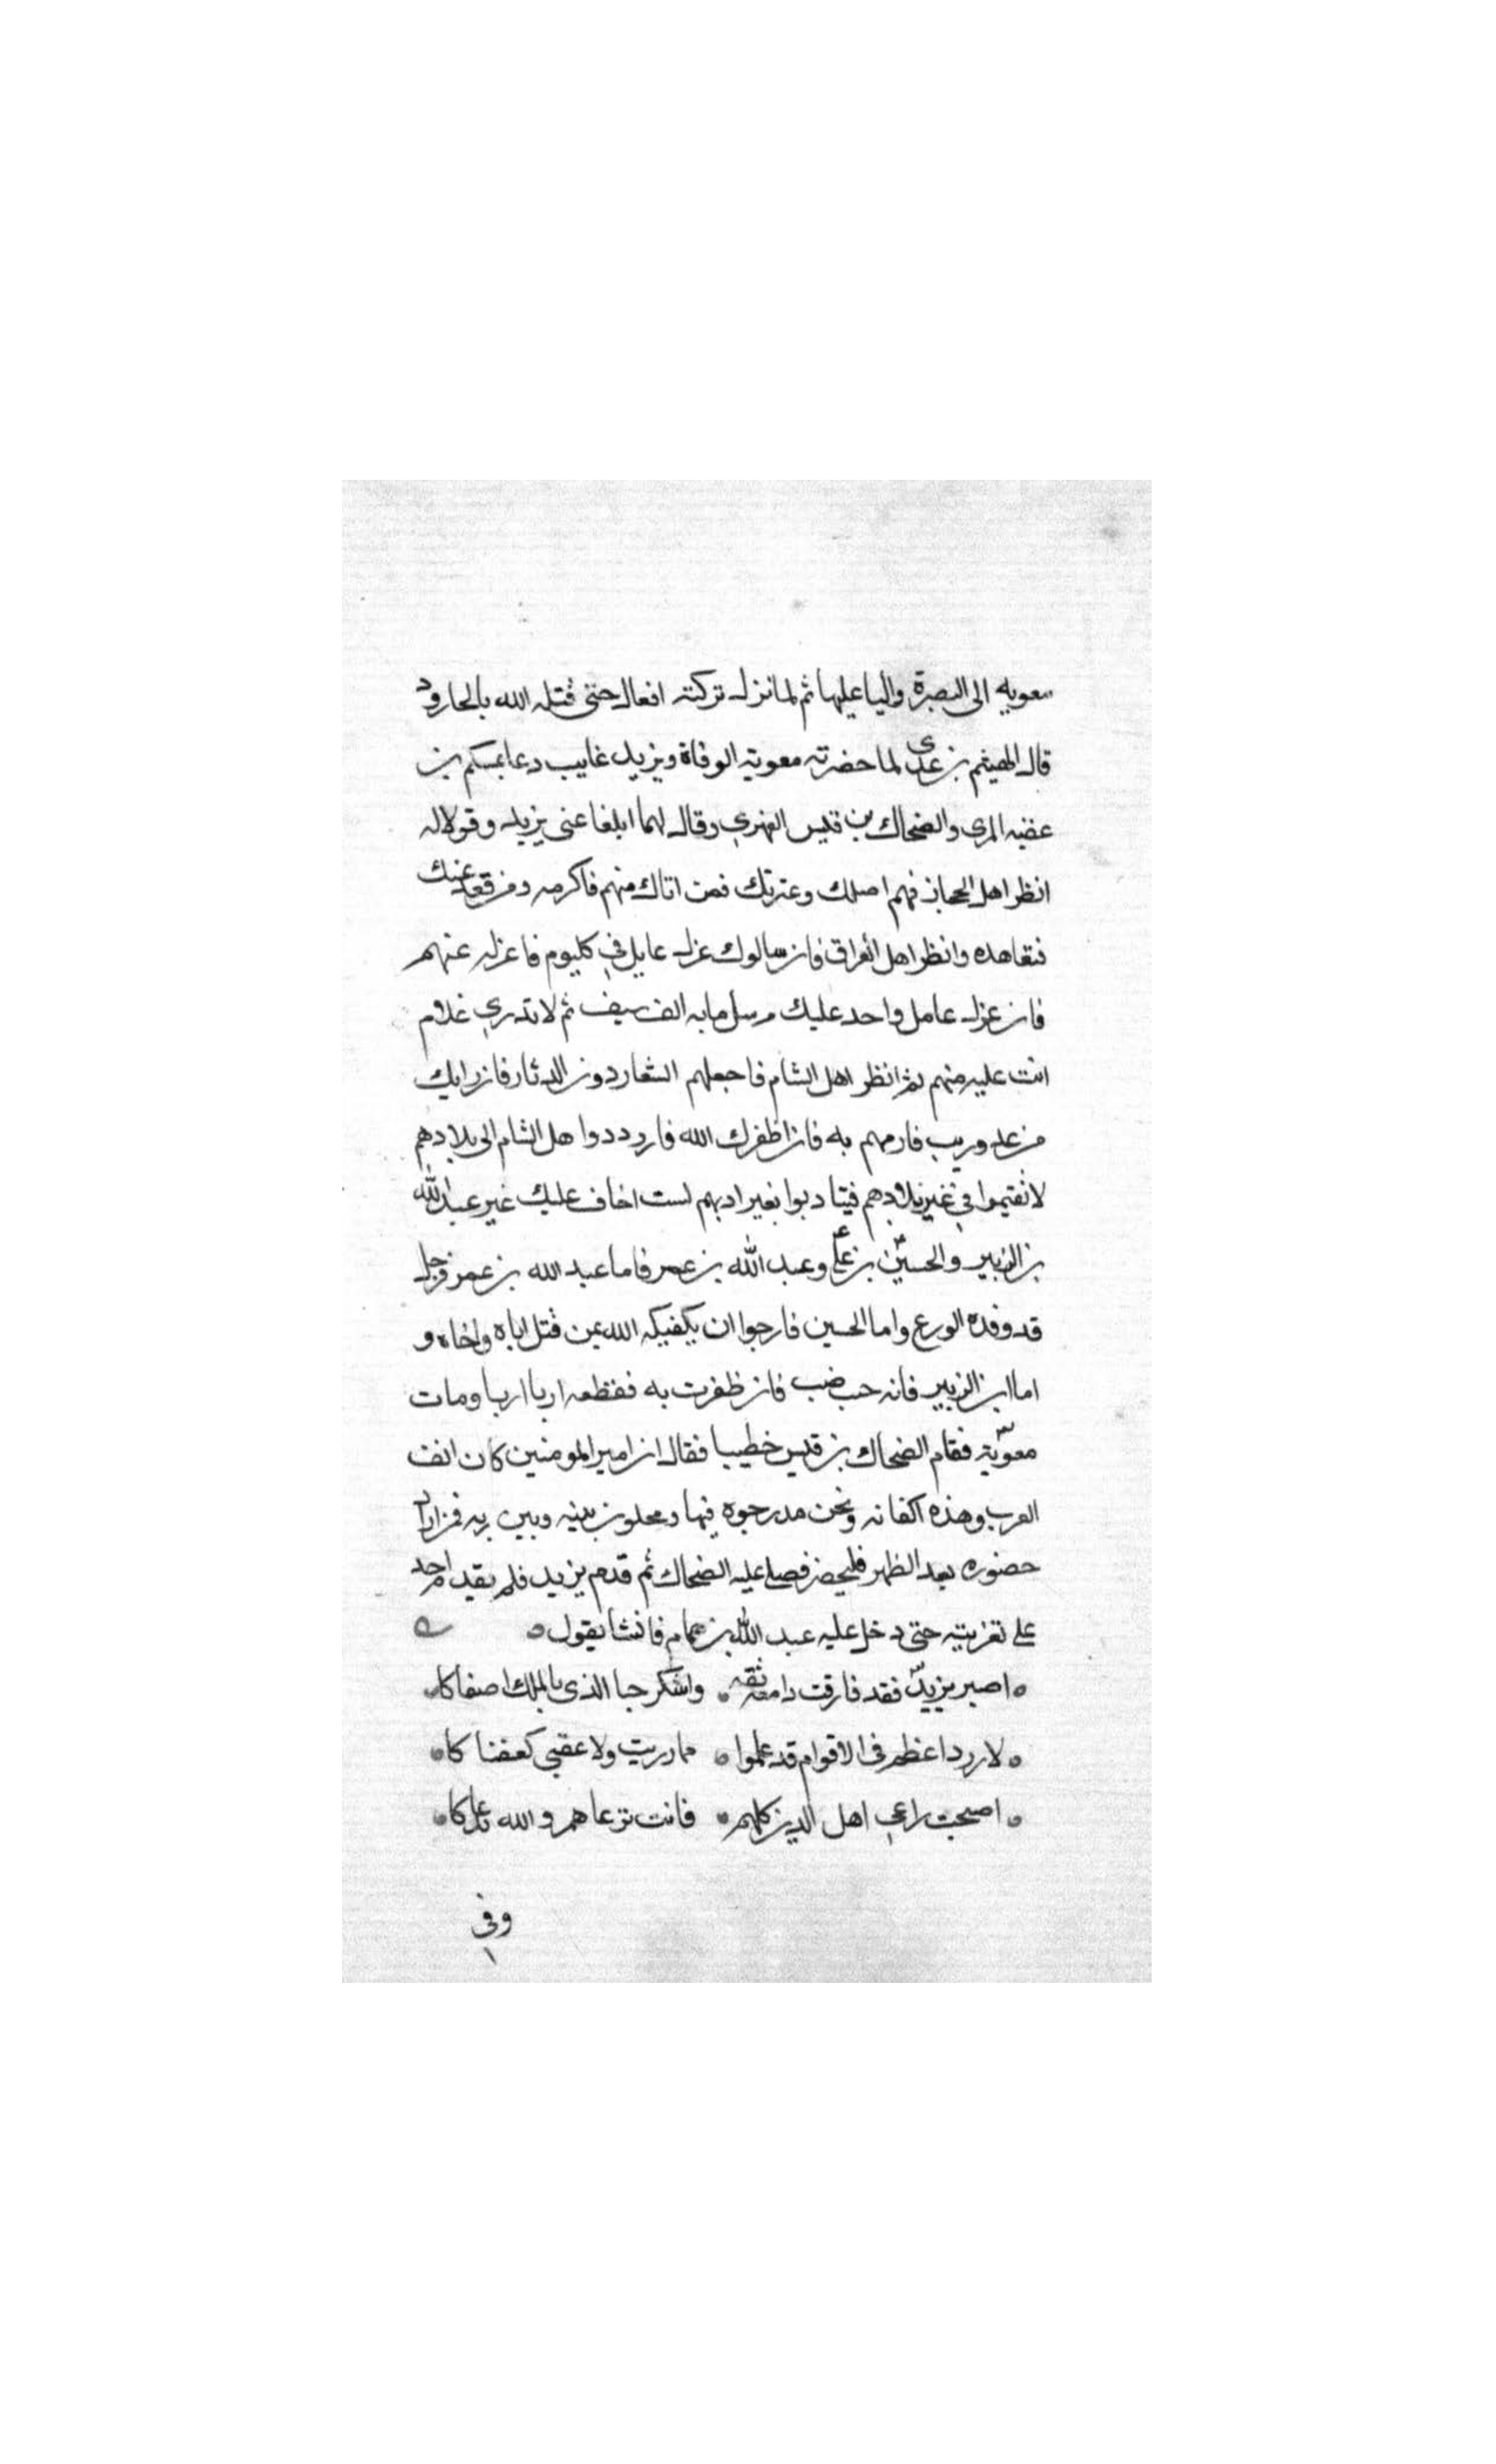 معويه الى البصرة واليا عليها ثم لما نزل تركته افعال حتى قتله الله بالحارود
قال الهيثم بن عدى لما حضرته معوية الوفاة ويزيد غايب دعا بمسلم بن
عقبه المرى والضحاك بن قيس الفهري وقال لهما ابلغا عنى يزيد وقولا له
انظر اهل الحجاز فهم اصلك وعترتك فمن اتاك منهم فاكرمه ومن قعد عنك
فتعاهده وانظر اهل العراق فان سالوك عزل عامل في كل يوم فاعزله عنهم
فان عزل عامل واحد عليك من سل مايه الف سيف ثم لا تدري غلام
انت عليه منهم ثم انظر اهل الشام فاجعلهم الشعار دون الدثار فان رابك
من عدو ريب فارمهم به فان اظفرك الله فاردد اهل الشام الى بلادهم
لا تقيموا في غير بلادهم فيتادبوا بغير ادبهم لست اخاف عليك غير عبد الله
بن الزبير والحسين بن علي وعبد الله بن عمر فاما عبد الله بن عمر فرجل
قد وقده الورع واما الحسين فارجوا ان يكفيكه الله بمن قتل اباه واخاه و
اما ابن الزبير فانه خب ضب فان ظفرت به فقطعه اربا اربا ومات
معوية فقام الضحاك بن قيس خطيبا فقال ان امير المومنين كان انف
العرب وهذه اكفانه ونحن مدرجوه فيها ومخلون بينه وبين ربه فمن اراد
حضوره بعد الظهر فليحضر فصلى عليه الضحاك ثم قدم يزيد فلم يقدم احد
على تعزيته حتى دخل عليه عبد الله بن همام فانشا يقول
اصبر يزيد فقد فارقت ذا مقة ثقه واشكر حبا الذى بالملك اصفاكا
لا رزء اعظم فى الاقوام قد علموا مما رزيت ولا عقبى كعقباكا
اصبحت راعي اهل الدين كلهم فانت ترعاهم والله يرعاكا
وفي